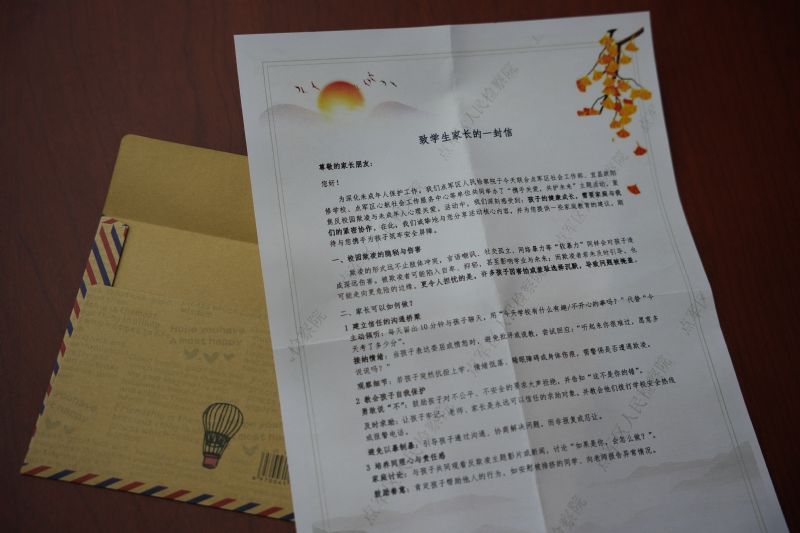 致学生家长的一封信
尊敬的家长朋友：
您好！
为深化未成年人保护工作，我们点军区人民检察院于今天联合点军区社会工作部、宜昌欧阳
修学校、点军区心航社会工作服务中心等单位共同举办了“携手关爱，共护未来”主题活动，聚
焦反校园欺凌与未成年人心理关爱。活动中，我们深刻感受到：孩子的健康成长，需要家庭与我
们的紧密协作。在此，我们诚挚地与您分享活动核心内容，并为您提供一些家庭教育的建议，期
待与您携手为孩子筑牢安全屏障。
一、校园欺凌的隐秘与伤害
欺凌的形式远不止肢体冲突，言语嘲讽、社交孤立、网络暴力等“软暴力”同样会对孩子造
成深远伤害。被欺凌者可能陷入自卑、抑郁，甚至影响学业与未来；而欺凌者若未及时引导，也
可能走向更危险的边缘。更令人担忧的是，许多孩子因害怕或羞耻选择沉默，导致问题被掩盖。
二、家长可以如何做？
1 建立信任的沟通桥梁
主动倾听：每天留出10分钟与孩子聊天，用“今天学校有什么有趣/不开心的事吗？”代替“今
天考了多少分”。
接纳情绪：当孩子表达委屈或愤怒时，避免批评或说教，尝试回应：“听起来你很难过，愿意多
说说吗？”
观察细节：若孩子突然抗拒上学、情绪低落、睡眠障碍或身体伤痕，需警惕是否遭遇欺凌。
2 教会孩子自我保护
勇敢说“不”：鼓励孩子对不公平、不安全的要求大声拒绝，并告知“这不是你的错”。
及时求助：让孩子牢记，老师、家长是永远可以信任的求助对象，并教会他们拨打学校安全热线
或报警电话。
避免以暴制暴：引导孩子通过沟通、协商解决问题，而非报复或忍让。
3 培养同理心与责任感
家庭讨论：与孩子共同观看反欺凌主题影片或新闻，讨论“如果是你，会怎么做？”。
鼓励善意：肯定孩子帮助他人的行为，如安慰被排挤的同学、向老师报告异常情况。